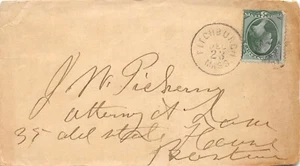 FITCHBURG
23
MASS.
J. W. Pickering
Attorney at Law
35 old state House
Boston